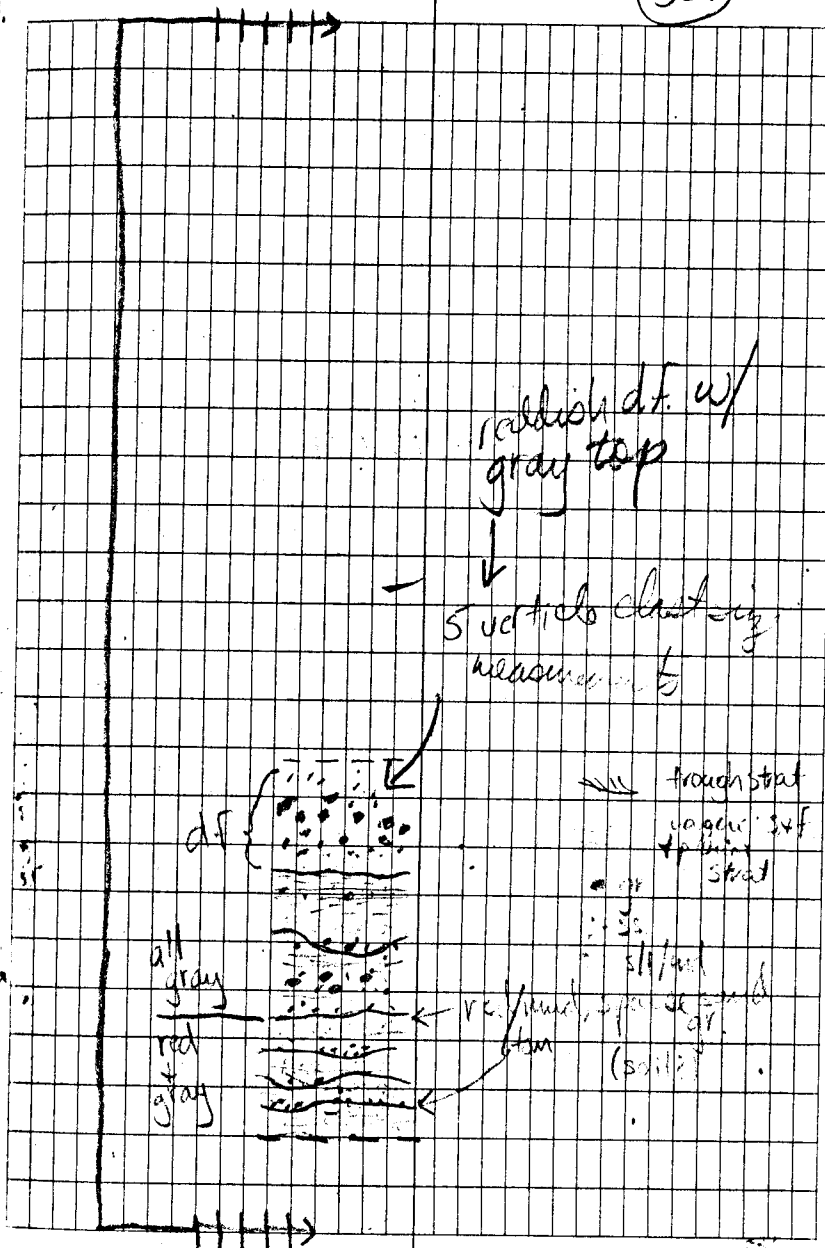 reddish df. w/
gray top
5 verticle clast siz
measurements
df
trough strat
vague
strat
gr
ss
slt/md
all
gray
red
+
gray
red/mud, sparse
gr.
tan
(soil)